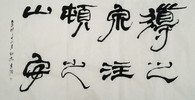 導之
泉注
頓之
山安